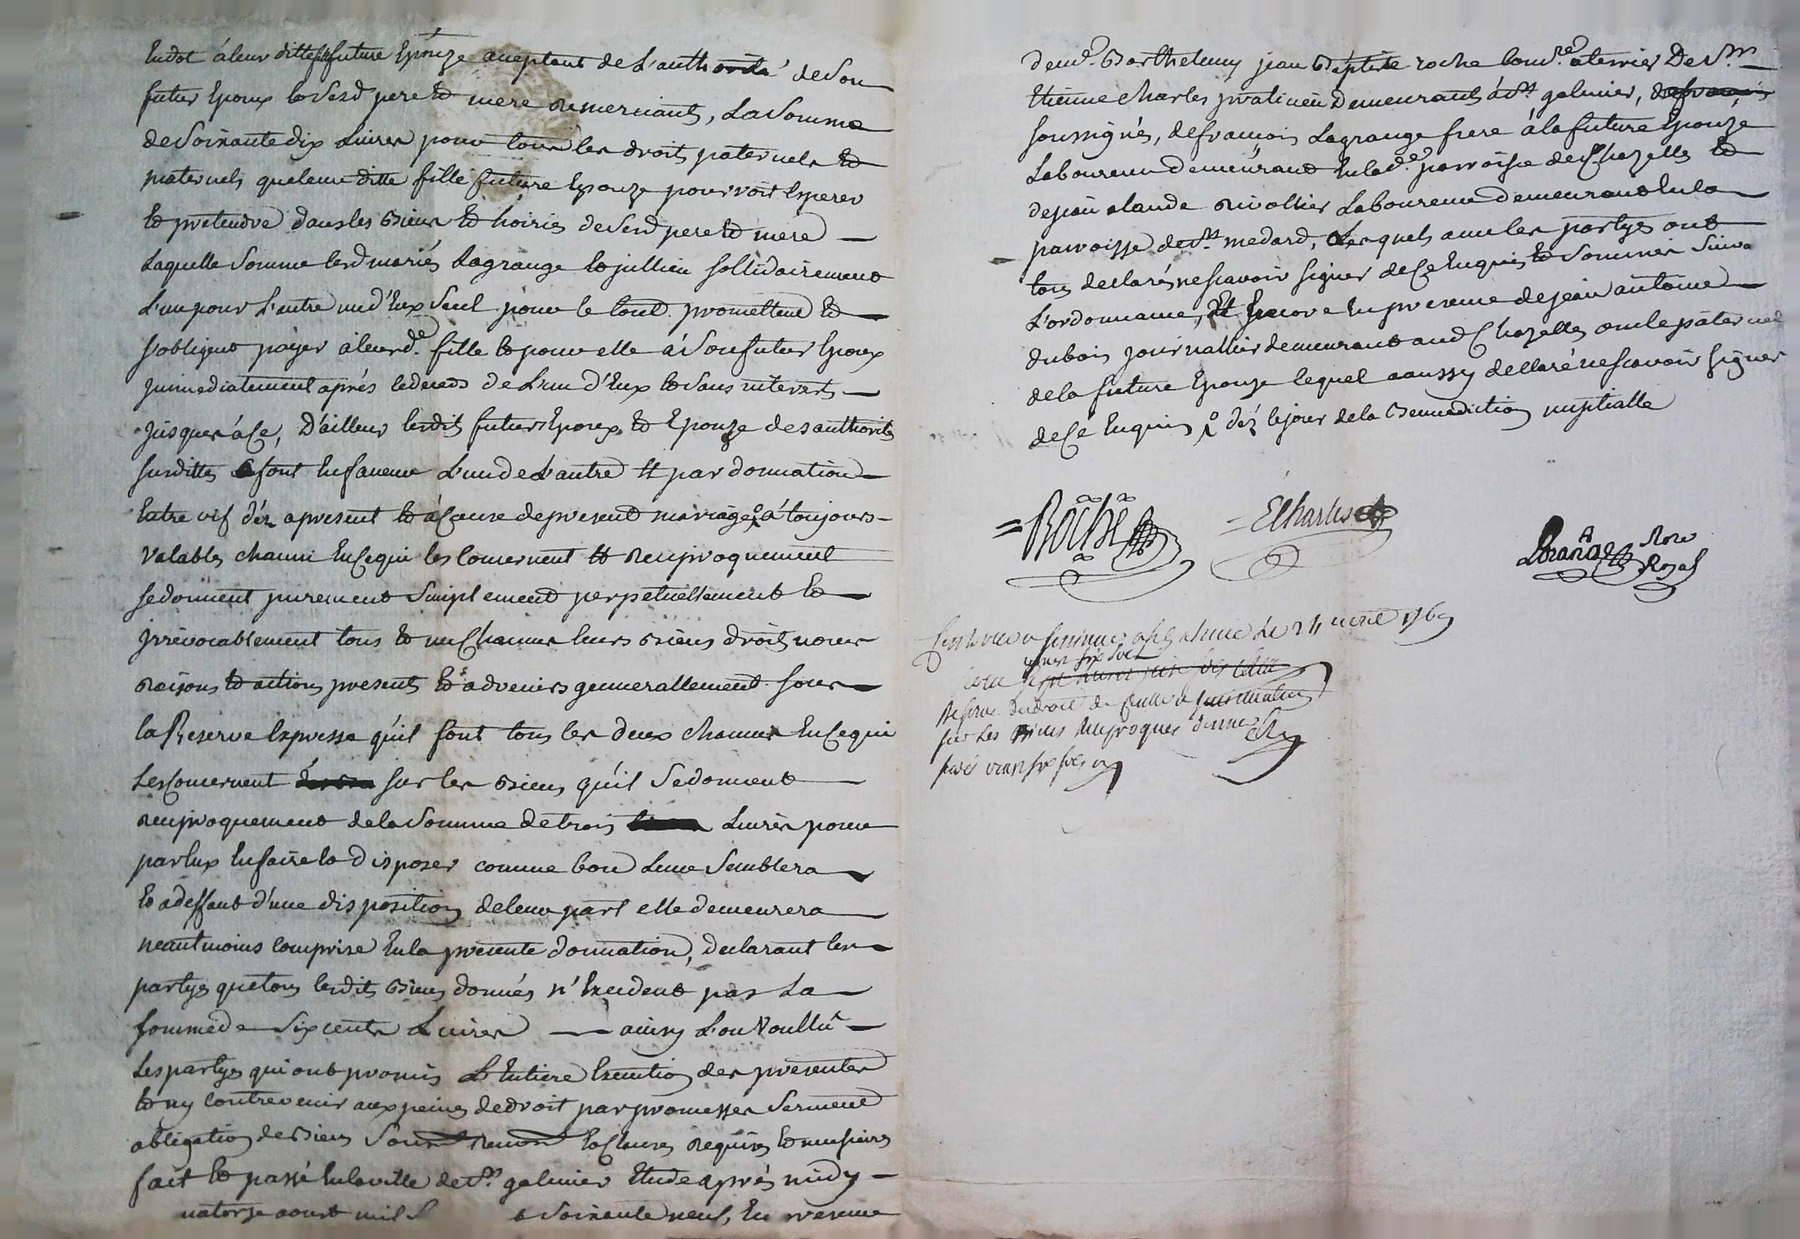 En dot à leur ditte future Epouze acceptant de L'authorité de Son
futur Epoux le Sesd pere Et mere remerciant, La Somme
de Soixante dix Livres pour tous les droits paternels Et
maternels que leur ditte fille future Epouze pourroit Esperer
Et prétendre dans les Biens Et hoiries de Sesd pere Et mere
Laquelle Somme lesd mariés Lagrange Et jullien sollidairement
L'un pour L'autre un d'Eux Seul pour le tout promettent Et
s'obligent payer à leurde. fille Et pour elle à Son futur Epoux
immediatement aprés le deceds de L'un d'Eux Et Sans interets
jusques à Ce, D'ailleur lesdits futurs Epoux Et Epouze des authorités
Susdittes Se font En faveur L'un de L'autre par donnation
Entre vif déz apresent Et à Cause de present mariage à toujours
valable, chacun En Ce qui les Concernent Et reciproquement
Se donnent purement Simplement perpetuellement Et
jrrévocablement tous Et un Chacun leurs Biens droits noms
raisons Et actions presents Et advenirs generallement sous
la Reserve Expresse qu'il font tous les deux chacun En Ce qui
Les Concernent sur les Biens qu'il Se donnent
reciproquement de la Somme de trois Livres pour
par Eux En faire Et disposer comme bon Leur Semblera
Et a deffaut d'une disposition de leur part elle demeurera
neantmoins Comprise En la presente donnation, declarant les
partyes que tous lesdits Biens donnés n'Excedent pas La
somme de Six cents Livres ainsy L'ont Voullû
Les partyes qui ont promis L'Entiere Execution des presentes
Et ny Contrevenir aux peines de droit par promesses Serment
obligation de Biens Soum renon Et Clauses requises Et necessaires
fait Et passé En la ville de St. galmier Etude aprés midy
quatorze aoust mil S Soixante neuf, En presence
de me. Barthelemy jean Baptiste roche Comre. a terrier De Sr.
Etienne Charles praticien Demeurants à St galmier,
soussignés, de françois Lagrange frere à la future Epouze
Laboureur demeurant En lade. parroisse de Chazelles Et
de jean claude rivollier Laboureur demeurant En la
parroisse de St medard, Lesquels avec les partyes ont
tous declarés ne scavoir signer de Ce Enquis Et Sommés Suivt
L'ordonnance, Et Encore En presence de jean antoine
dubois journallier demeurant aud Chazelles oncle paternel
de la future Epouze lequel a aussy declaré ne scavoir signer
de Ce Enquis déz le jour de la Bennediction nuptialle
Roche ECharles Nore
Royal
a St galmier Le 24 1769
vingt six sols
Reserve du droit de
sur Les Biens reciproques
vingt six sols